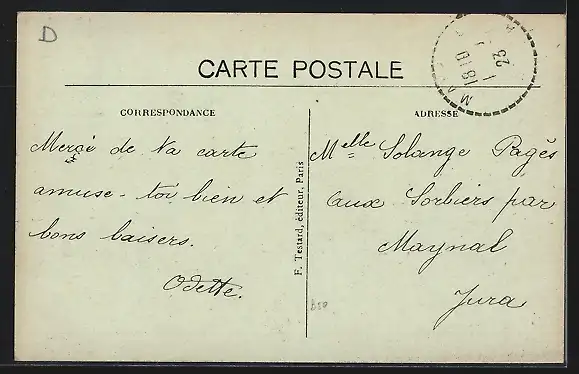 D
CARTE POSTALE
CORRESPONDANCE
Merçi de ta carte
amuse-toi bien et
bons baisers.
Odette.
F. Testard, éditeur, Paris
ADRESSE
Melle Solange Pagès
aux Sorbiers par
Maynal
Jura
18 10
23